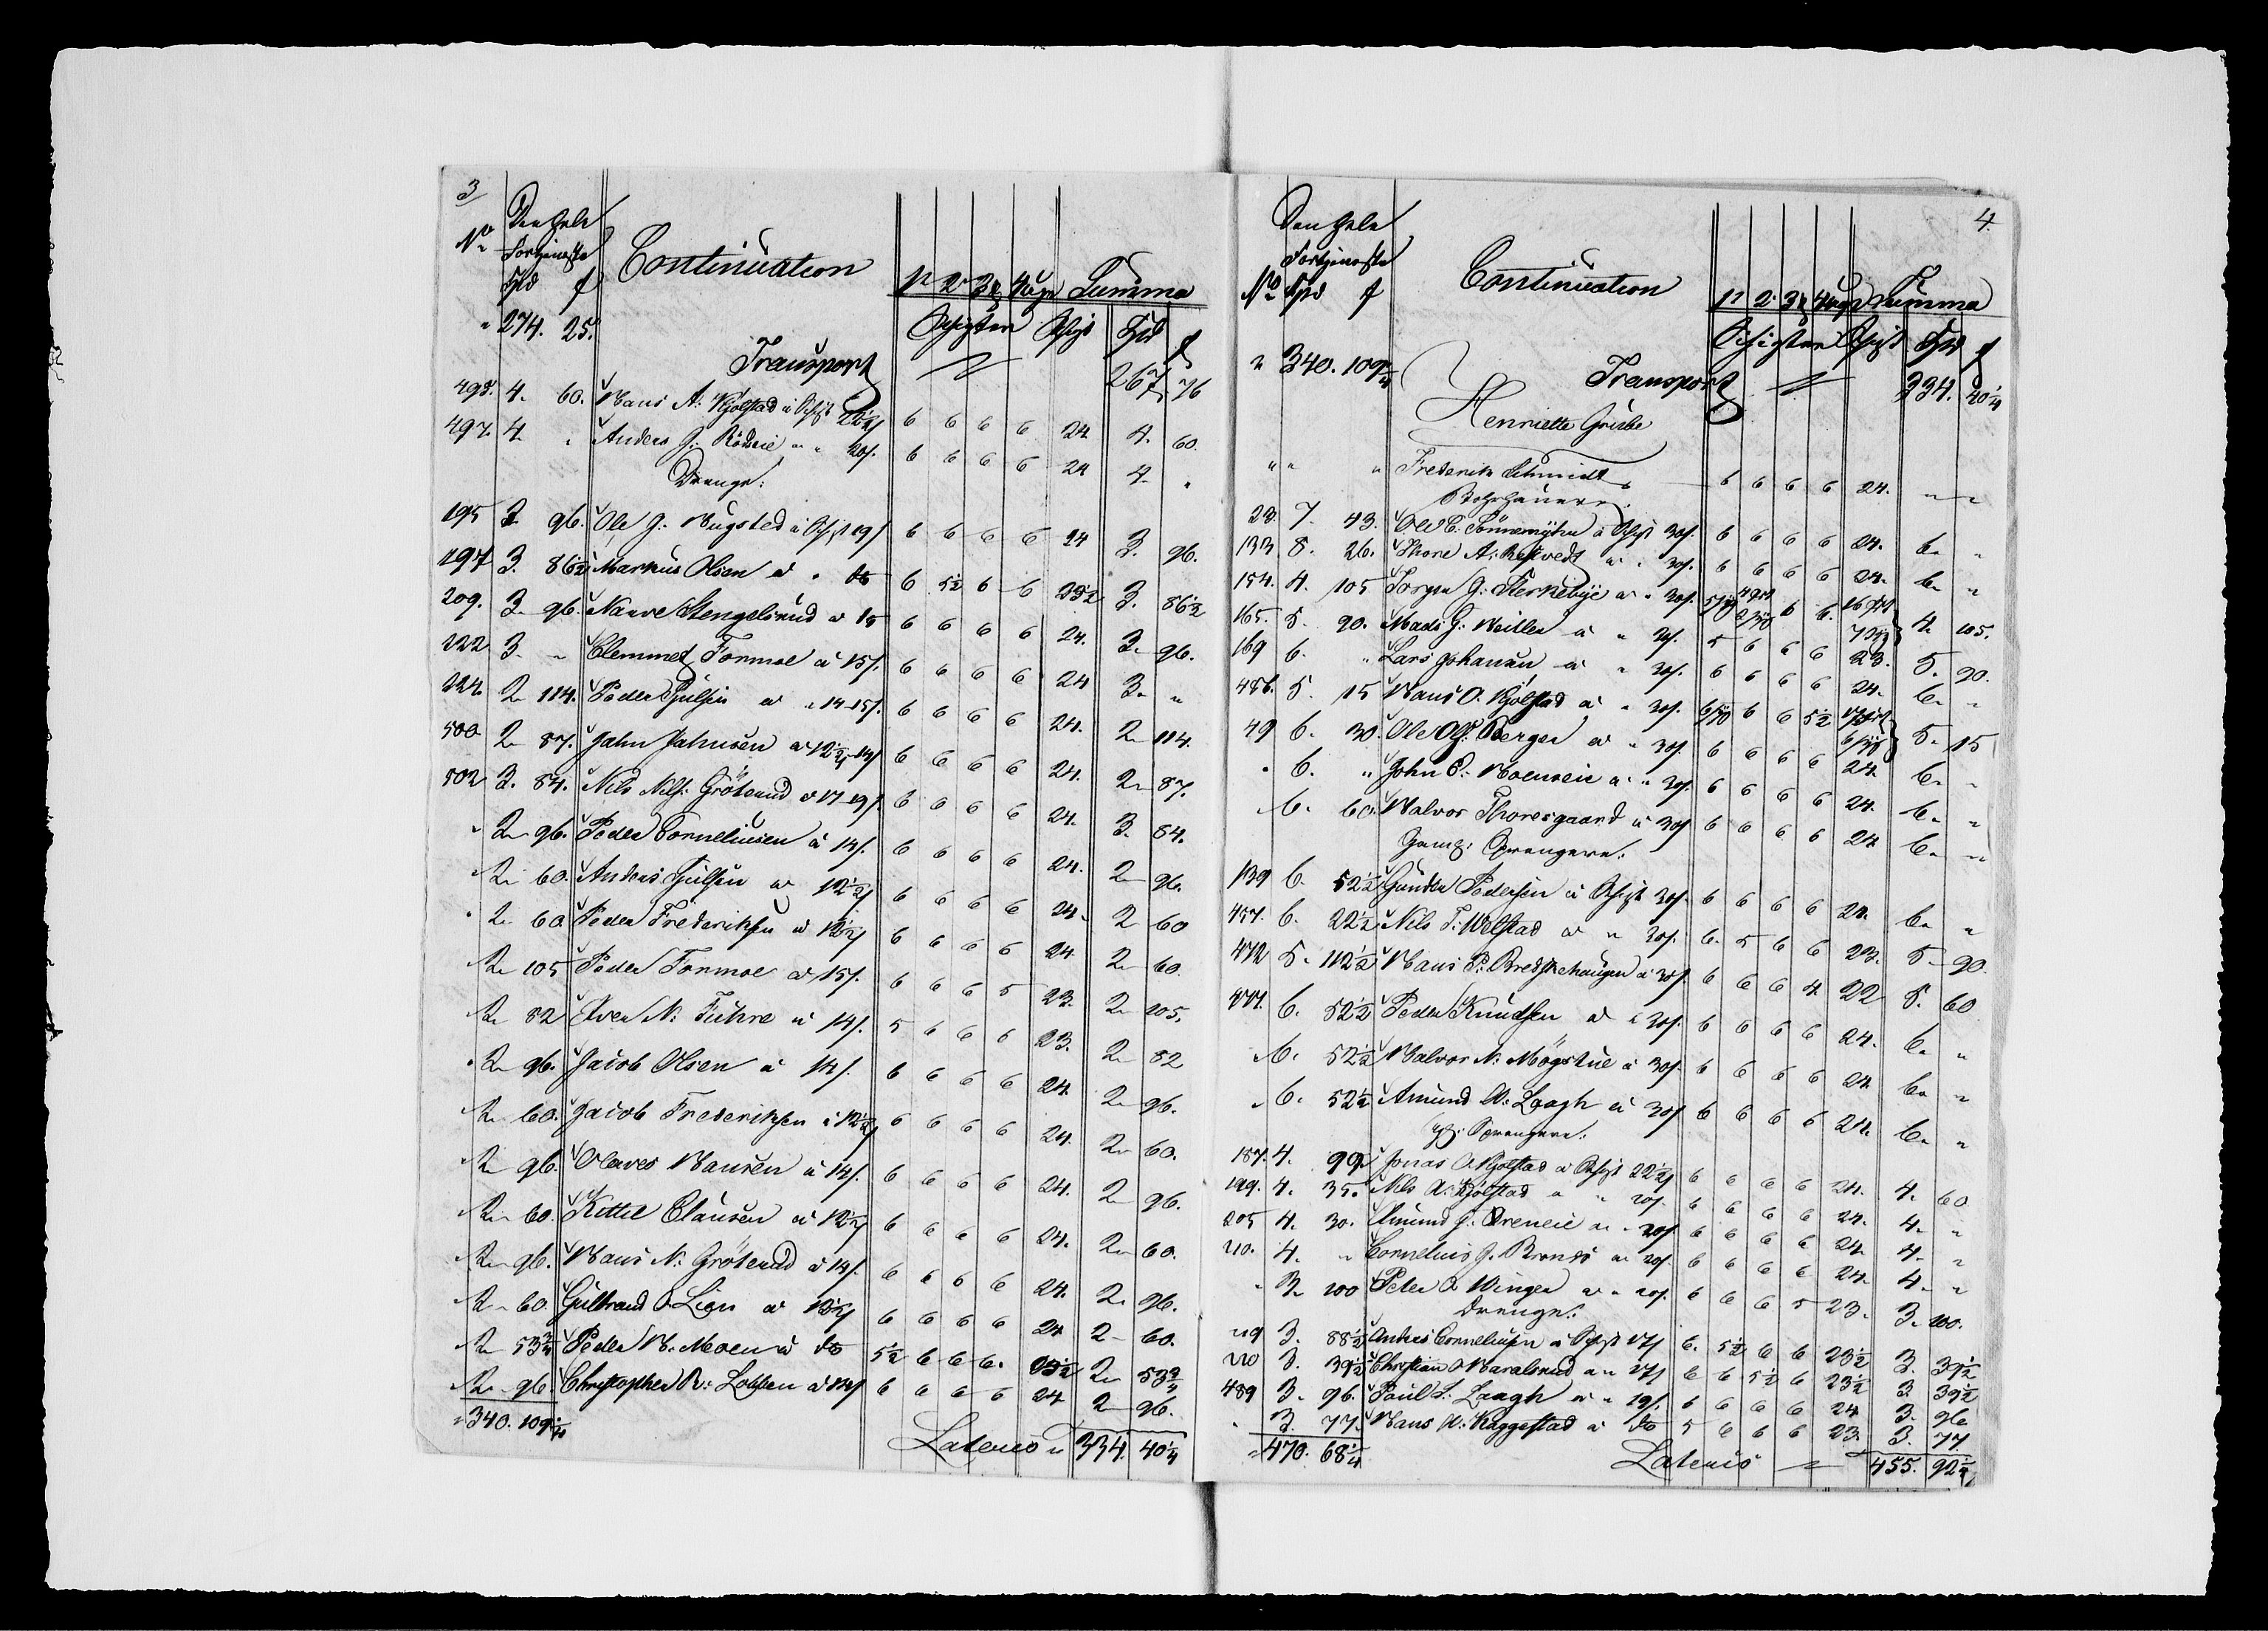 3
Den hele
No Fortjeneste Continuation 1e 2e 3e 4 Uge Summa
Spd f Schigter Schgt Spd f
" 274. 25. Transport 267. 76
498. 4. 60. Hans A: Kjølstad à Schigt 22½ f 6 6 6 6 24 4. 60.
497. 4. " Anders G: " 20 f. 6 6 6 6 24 4. "
Drenge:
195 3. 96. Ole J: Bugsted à Schigt 19 f 6 6 6 6 24 3. 96.
197 3. 86½ Markus Olsen à " do 6 5½ 6 6 23½ 3. 86½
209. 3. 96. Stengelsrud à 19 6 6 6 6 24. 3. 96.
222 3. " Clemmet Formoe à 15 f. 6 6 6 6 24 3. "
224. 2. 114. Peder à " 14-15 f. 6 6 6 6 24. 2. 114.
500 2. 87. Jahn Jahnsen à 12½-14 f 6 6 6 6 24. 2. 87.
502 3. 84. Nils Nilss: Grøterud à 17-19 f. 6 6 6 6 24. 3. 84.
" 2. 96. Peder Corneliusen à 14 f. 6 6 6 6 24. 2. 96.
" 2. 60. Anders à 12½ f 6 6 6 6 24. 2. 60
" 2. 60. Peder Frederiksen à 12½ f 6 6 6 6 24 2. 60.
" 2. 105 Peder Formoe à 15 f. 6 6 6 5 23. 2. 105.
" 2. 82 Iver N: Fuhre à 14 f. 5 6 6 6 23. 2. 82
" 2. 96. Jacob Olsen à 14 f. 6 6 6 6 24. 2. 96.
" 2. 60. Jacob Frederiksen à 12½ f 6 6 6 6 24. 2. 60.
" 2. 96. Olaves Hansen à 14 f. 6 6 6 6 24. 2. 96.
" 2. 60. Kittil Clausen à 12½ f 6 6 6 6 24. 2. 60.
" 2. 96. Hans N: Grøterud à 14 f. 6 6 6 6 24. 2. 96.
" 2. 60. Gulbrand O. Lien à 12½ f 6 6 6 6 24 2. 60.
" 2. 53¾ Peder H: Moen à do 5½ 6 6 6. 23½ 2. 53¾
" 2. 96. Christopher R: à 14 f 6 6 6 6 24 2. 96.
" 340. 109¼ Lateris " 334. 40¼
4.
Den hele
Fortjeneste Continuation
No Spd f 1e 2. 3e 4 Uge Summa
Schigter Schigt Spd f
" 340. 109¼ Transport 334. 40¼
Henriette Grube
" " " Frederik Schmidt 6 6 6 6 24. " "
Borhauere.
23. 7. 43. Ole C. à Schigt 30 f. 6 6 6 6 24. 6. "
133 8. 26. Thore A: à " 30 f. 6 6 6 6 24. 6. "
154. 4. 105 Jørgen G: Sterkebye à " 30 f. 6 6. 4. 105.
165. 5. 90. Mads G: Weiller à " 30 f. 5 6 6 6 23. 5. 90.
169 6. " Lars Johansen à " 30 f. 6 6 6 6 24. 6. "
456. 5. 15 Hans O. Kjølstad à " 30 f. 6 6 5½ 5. 15
49 6. 30. Ole Berger à " 30 f. 6 6 6 6 24. 6. "
" 6. " John P: à " 30 f. 6 6 6 6 24. 6. "
" 6. 60. Halvor Thoresgaard à 30 f 6 6 6 6 24 6. "
Gamle Sprengere.
139 6. 52½ Gunder Pedersen à Schigt 30 f 6 6 6 6 24. 6. "
457. 6. 22½ Nils T: Welstad à " 30 f. 6. 5 6 6 23. 5. 90.
472 5. 112½ Hans P: à 30 f. 6 6 6 4. 22 5. 60
477. 6. 52½ Peder Knudsen à " 30 f. 6 6 6 6 24. 6. "
" 6. 52½ Halvor N: Møgstue à 30 f. 6 6 6 6 24. 6. "
" 6. 52½ Amund A: Laagh à 30 f 6 6 6 6 24. 6. "
Sprengere.
187. 4. 99. Jonas A. Kjølstad à Schigt 22½ f 6 6 6 6 24. 4. 60
199. 4. 35. Nils A: Kjølstad à " 20 f. 6 6 6 6 24. 4. "
205 4. 30. Amund J: à " 20 f 6 6 6 6 24. 4. "
210. 4. " Cornelius J. à 20 f. 6 6 6 6 24. 4. "
" 3. 100 Peter A Winger à " 20 f. 6 6 6 5 23. 3. 100.
Drenge:
219 3. 88½ Anders Corneliusen à Schigt 17 f 6. 5½ 6 6 23½ 3. 39½
220 3. 39½ Christian O Haralsrud à " 17 f 6 6 5½ 6 23½ 3. 39½
489 3. 96. Paul L: Laagh à " 19 f. 6 6 6 6 24 3. 96
" 3. 77. Hans H: Kaggestad à do 5 6 6 6 23. 3. 77.
" 470. 68¼ Lateris 455. 92¼